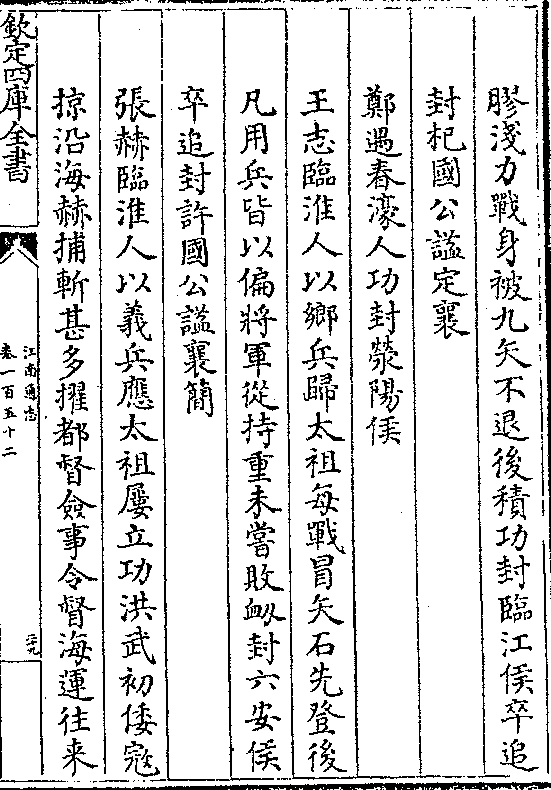 膠淺力戰身被九矢不退後積功封臨江侯卒追
封杞國公諡定襄
鄭遇春濠人功封滎陽侯
王志臨淮人以鄉兵歸太祖每戰冒矢石先登後
凡用兵皆以偏將軍從持重未嘗敗衂封六安侯
卒追封許國公諡襄簡
張赫臨淮人以義兵應太祖屢立功洪武初倭寇
掠沿海赫捕斬甚多擢都督僉事令督海運往来
欽定四庫全書
江南通志
卷一百五十二
二十九